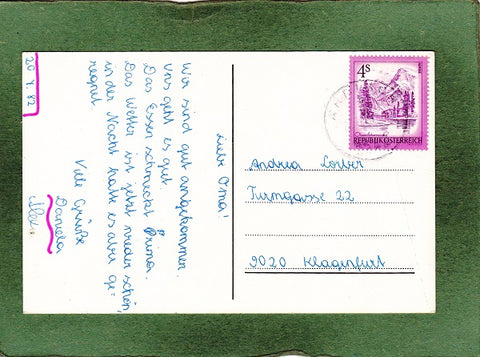 20 7. 82
Liebe Oma!
Wir sind gut angekommen.
uns geht es gut.
Das Essen schmecket Prima.
Das Wetter ist jetzt wieder schön,
in der Nacht hatte es aber ge=
regnet
Viele Grüße
Daniela
4s
REPUBLIK ÖSTERREICH
Andrea Lorber
Turmgasse 22
9020 Klagenfurt